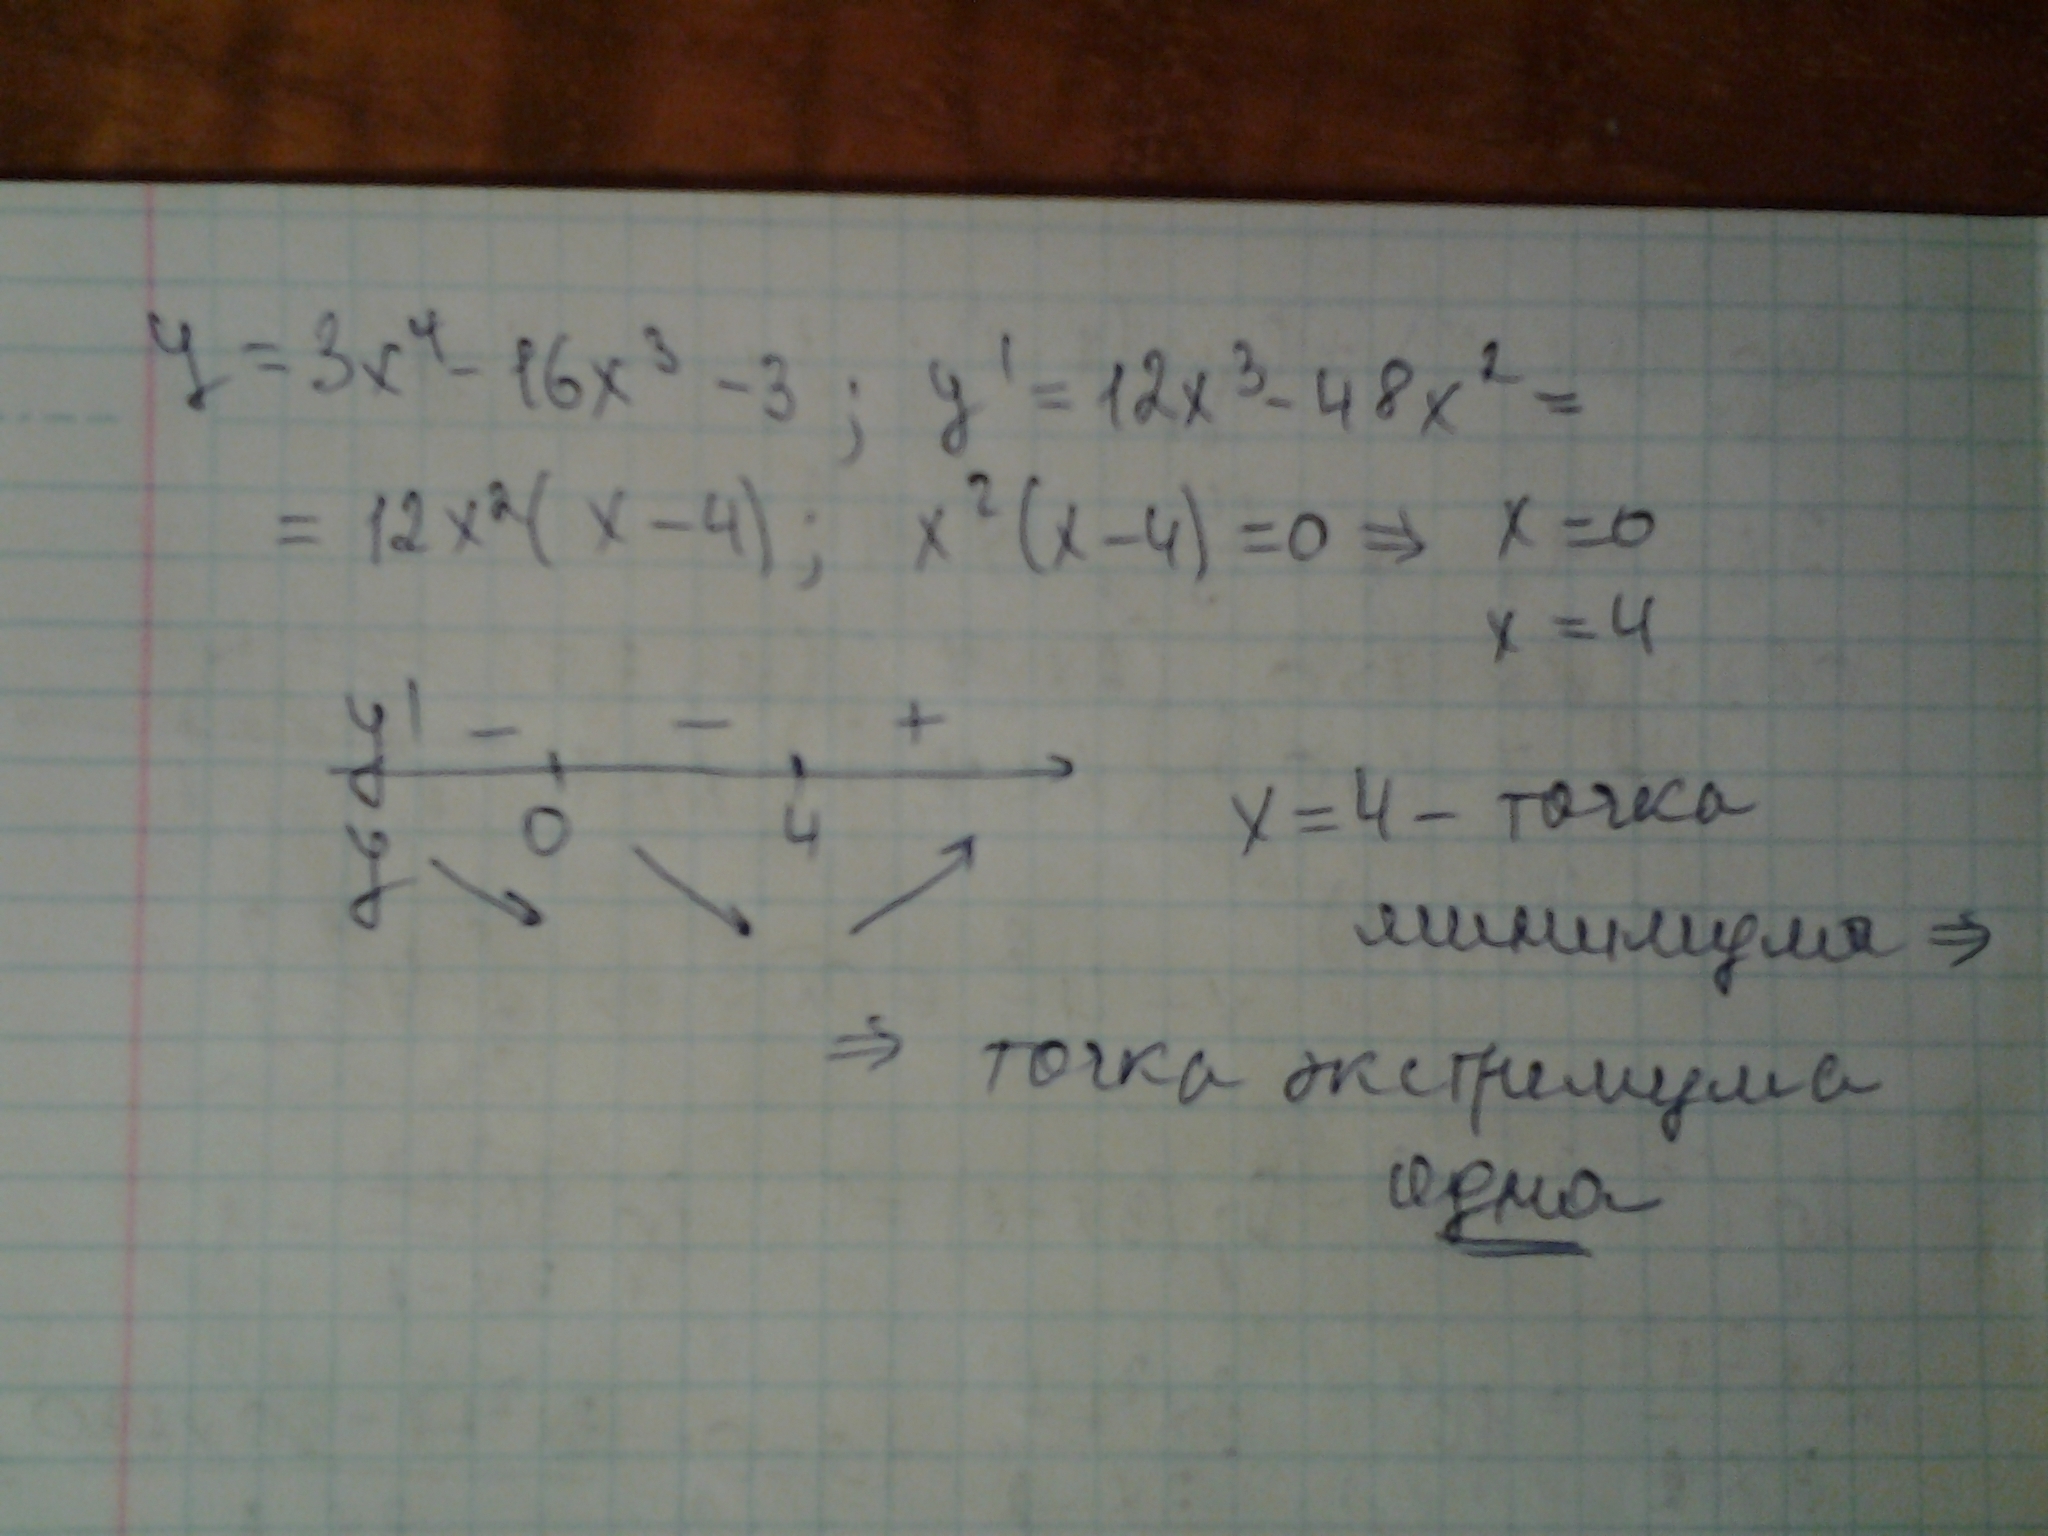 y = 3x⁴ - 16x³ - 3 ; y' = 12x³ - 48x² =
= 12x² ( x - 4) ; x² (x - 4) = 0 ⇒ x = 0
x = 4
y' - - +
0 4
y ↘ ↘ ↗
x = 4 - точка
минимума ⇒
⇒ точка экстремума
одна